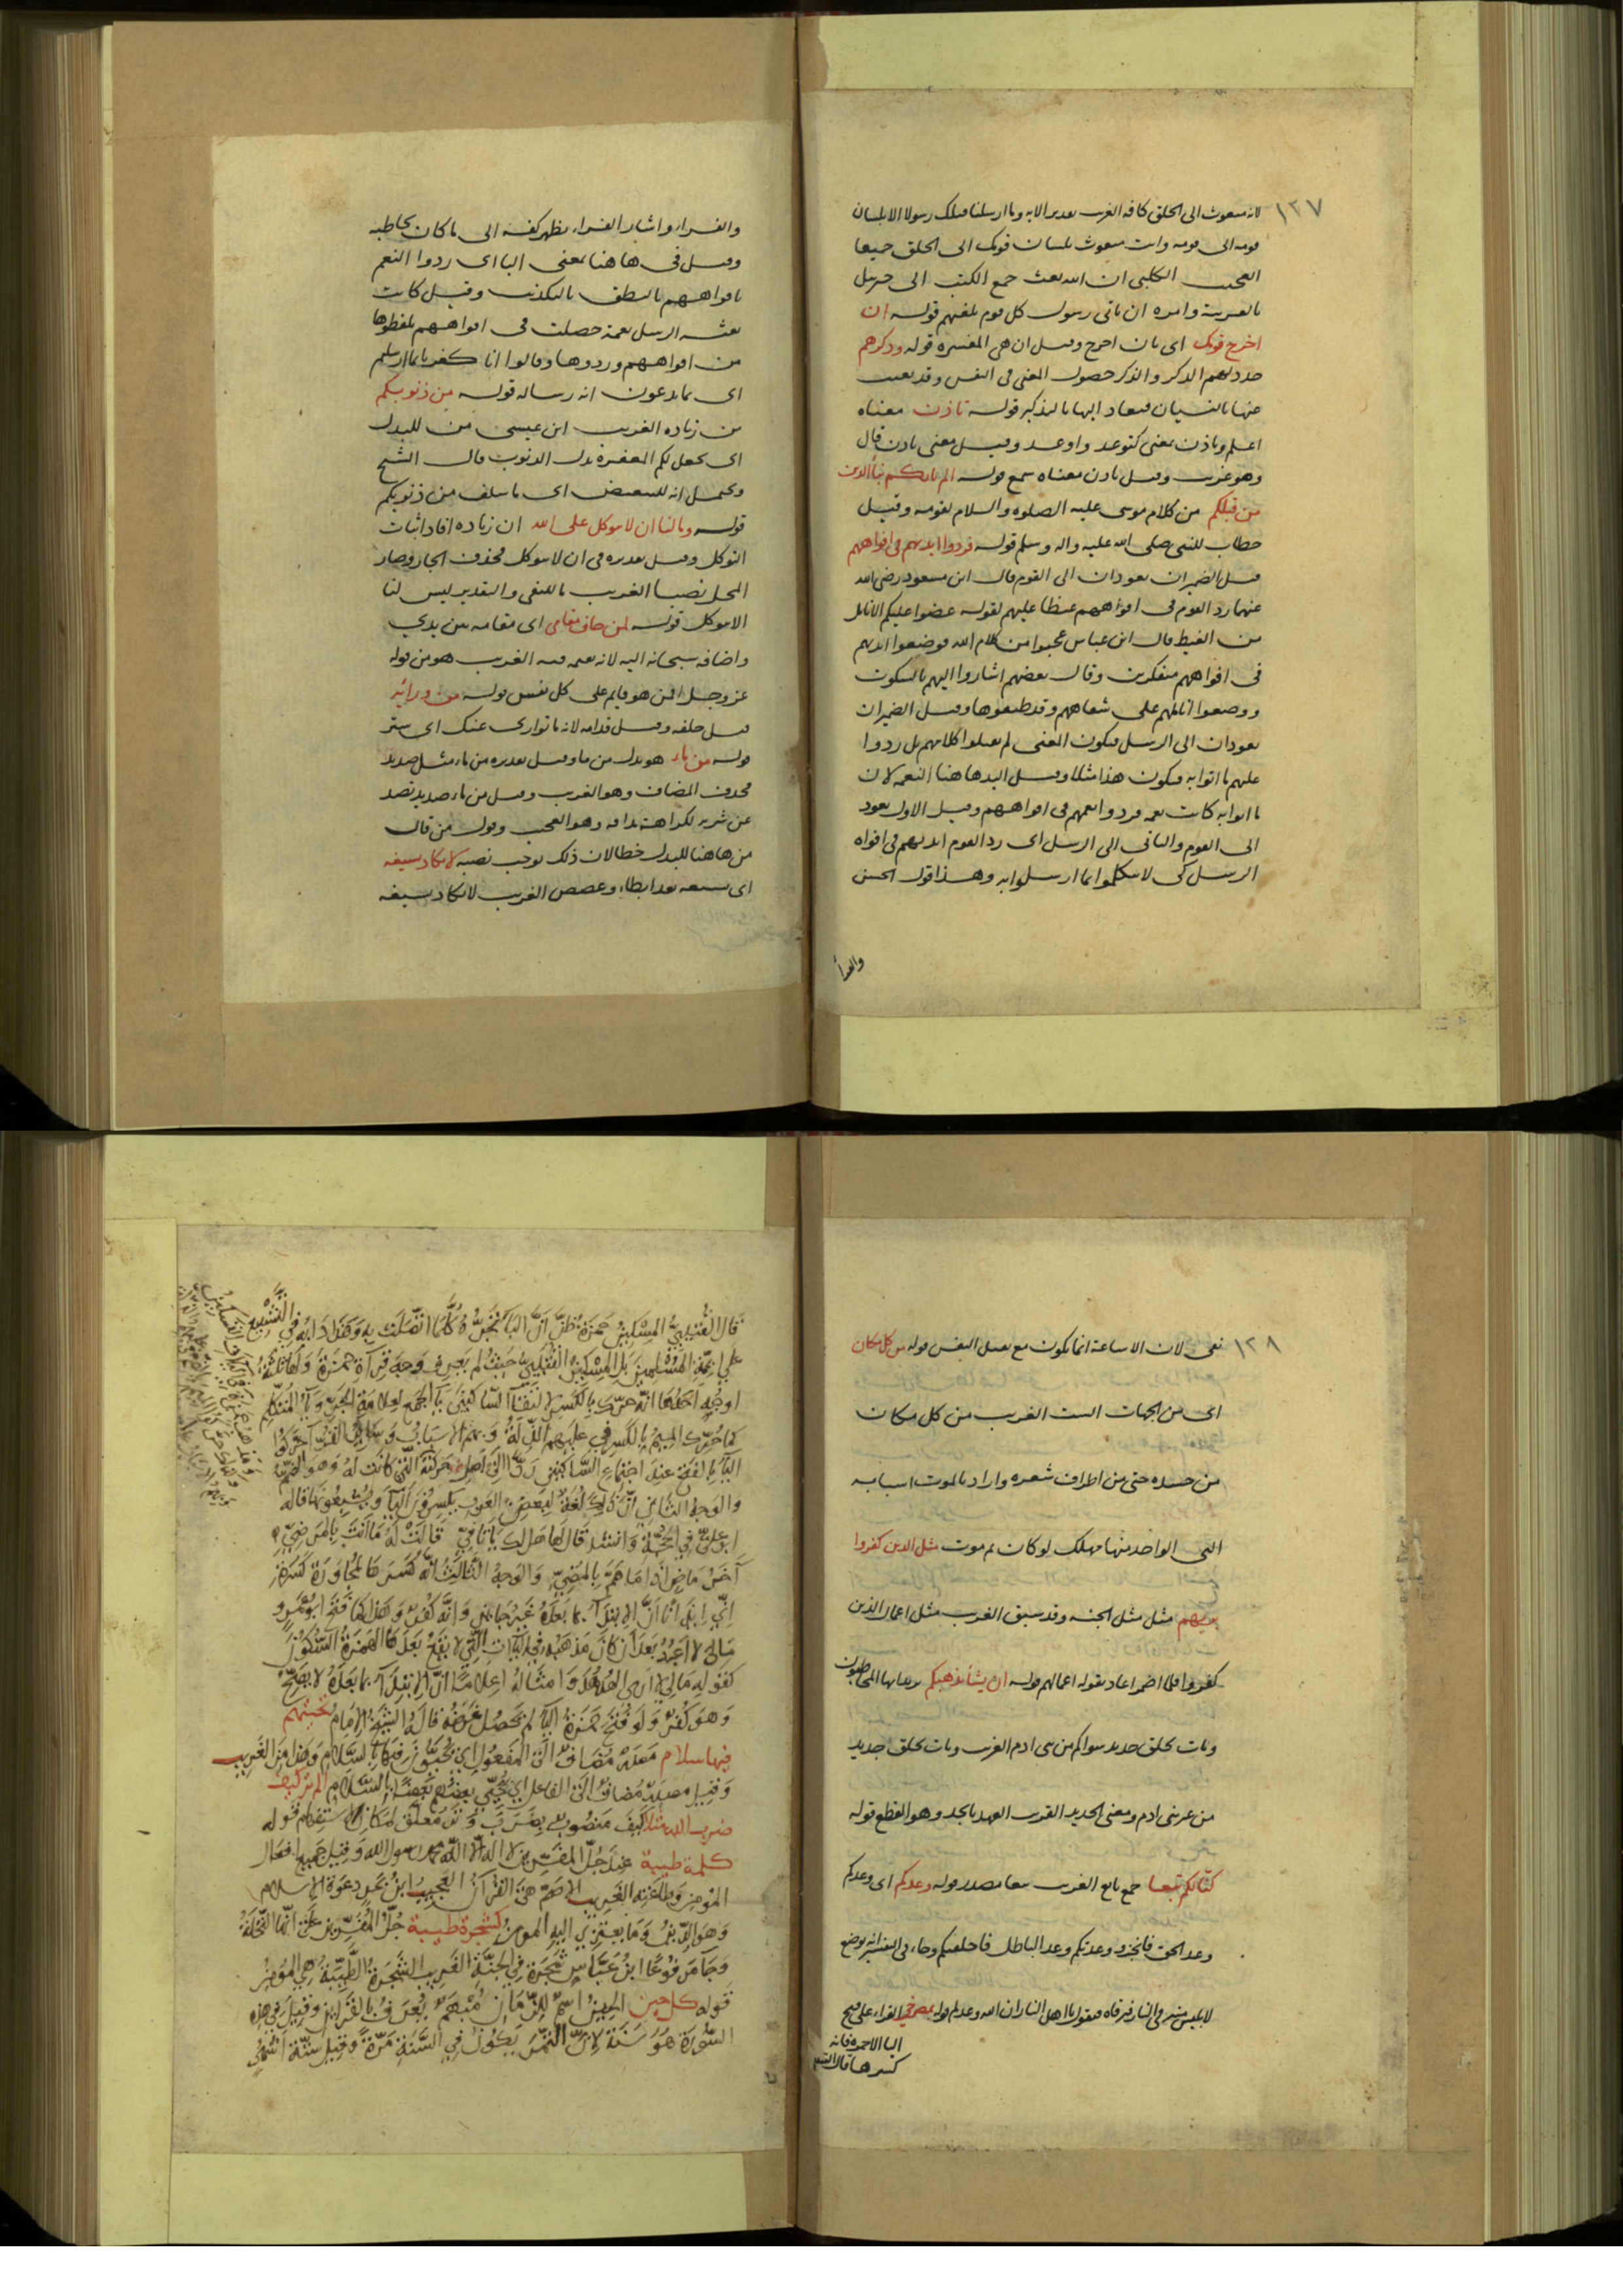 ١٢٧
لانه مبعوث الى الخلق كافة الغريب تقدير الآية وما ارسلنا قبلك رسولا الا بلسان
قومه الى قومه وانت مبعوث بلسان قومك الى الخلق جميعا
العجيب الكلبي ان الله بعث جميع الكتب الى جبريل
بالعربية وامره ان ياتي رسول كل قوم بلغتهم قوله ان
اخرج قومك اى بان اخرج وقيل ان هي المفسرة قوله وذكرهم
جدد لهم الذكر والذكر حصول المعنى في النفس وقد يغيب
عنها بالنسيان فيعاد اليها بالتذكير قوله تاذن معناه
اعلم وتاذن بمعنى كتوعد واوعد وقيل معنى تاذن قال
وهو غريب وقيل تاذن معناه سمع قوله الم ياتكم نبأ الذين
من قبلكم من كلام موسى عليه الصلوة والسلام لقومه وقيل
خطاب للنبي صلى الله عليه واله وسلم قوله فردوا ايديهم في افواههم
قيل الضميران يعودان الى القوم قال ابن مسعود رضى الله
عنهما رد القوم في افواههم غيظا عليهم لقوله عضوا عليكم الانامل
من الغيظ قال ابن عباس عجبوا من كلام الله فوضعوا ايديهم
في افواههم متفكرين وقال بعضهم اشاروا اليهم بالسكوت
ووضعوا اناملهم على شفاههم وقد طبقوها وقيل الضميران
يعودان الى الرسل فيكون المعنى لم يقبلوا كلامهم بل ردوا
عليهم ما اتوا به فيكون هذا مثلا وقيل اليد هاهنا النعمة لان
ما اتوا به كانت نعمة فردوا نعمهم في افواههم وقيل الاول يعود
الى القوم والثاني الى الرسل اى رد القوم ايديهم في افواه
الرسل كى لا يتكلموا بما ارسلوا به وهذا قول الحسن
والفرأ
والفراء واشار الفراء بظهر كفه الى ما كان يخاطبه
وقيل في هاهنا بمعنى البا اى ردوا النعم
بافواههم بالنطق بالتكذيب وقيل كانت
بعثة الرسل نعمة حصلت في افواههم فلفظوها
من افواههم وردوها وقالوا انا كفرنا بما ارسلتم
اى بما تدعون انه رسالة قوله من ذنوبكم
من زيادة الغريب ابن عيسى من للبدل
اى يجعل لكم المغفرة بدل الذنوب قال الشيخ
ويحتمل انه للتبعيض اى ما سلف من ذنوبكم
قوله ومالنا ان لا نتوكل على الله ان زيادة افاد اثبات
التوكل وقيل تقديره في ان لا نتوكل فحذف الجار وصار
المحل نصبا الغريب ما للنفى والتقدير ليس لنا
الا نتوكل قوله لمن خاف مقامى اى مقامه بين يدي
واضافه سبحانه اليه لانه يقيمه فيه الغريب هو من قوله
عز وجل افمن هو قايم على كل نفس قوله من ورائه
قيل خلفه وقيل قدامه لانه ما توارى عنك اى ستر
قوله من ماء هو بدل من ما وقيل تقديره من ماء مثل صديد
فحذف المضاف وهو الغريب وقيل من ماء صديد تصد
عن شربه لكراهته مذاقه وهو العجيب وقول من قال
من هاهنا للبدل خطا لان ذلك يوجب نصبه لا يكاد يسيغه
اى يسيغه بعد ابطاء وغصص الغريب لا يكاد يسيغه
١٢٨
نفى لان الاساغة انما يكون مع تقبل النفس قوله من كل مكان
اى من الجهات الست الغريب من كل مكان
من جسده حتى من اطراف شعره واراد بالموت اسبابه
التى الواحد منها مهلك لو كان ثم موت مثل الذين كفروا
بربهم مثل مثل الجنة وقد سبق الغريب مثل اعمال الذين
كفروا فلما اضمر اعاد بقوله اعمالهم قوله ان يشا يذهبكم
ويات بخلق جديد سواكم من بنى ادم الغريب ويات بخلق جديد
من غير بنى ادم ومعنى الجديد القريب العهد بالجد وهو القطع قوله
كنا لكم تبعا جمع تابع الغريب تبعا مصدر قوله وعدكم اى وعدكم
وعد الحق فانجزه ووعدتكم وعد الباطل فاخلفتكم وجاء في التفسير انه يوضع
لابليس منبر في النار فيرقاه فيقول يا اهل النار ان الله وعدكم قوله بمصرخي القراء على فتح
اليا الا حمزة فانه
كسرها قال القتيبي
قَالَ الْقُتَيْبِيُّ الْمِسْكِينُ حَمْزَةُ ظَنَّ اَنَّ الْبَا تَجُرُّهُ كُلَّمَا اتَّصَلَتْ بِهِ وَهَذَا دَابُهُ فِي التَّشْنِيعِ
عَلَى اَئِمَّةِ الْمُسْلِمِينَ بَلِ الْمِسْكِينُ الْقُتَيْبِيُّ حَيْثُ لَمْ يَعْرِفْ وَجْهَ قِرَآةِ حَمْزَةَ وَلَهَا ثَلَثَةُ
اَوْجُهٍ اَحَدُهَا اَنَّهُ حَرَّكَ بِالْكَسْرِ لِالْتِقَآ السَّاكِنَيْنِ يَآ الْجَمْعِ لِعَلَامَةِ الْجَرِّ وَيَآ الْمُتَكَلِّمِ
كَمَا حُرِّكَ الْمِيمُ بِالْكَسْرِ فِي عَلَيْهِمِ الذِّلَّةُ وَبِهِمِ الْاَسْبَابُ وَسَايِرُ الْقُرَّآ حَرَّكُوا
الْيَآ بِالْفَتْحِ عِنْدَ اجْتِمَاعِ السَّاكِنَيْنِ رَدًّا اِلَى اَصْلِ حَرَكَتِهِ الَّتِي كَانَتْ لَهُ
وَالْوَجْهُ الثَّانِي اَنَّ ذَلِكَ لُغَةٌ لِبَعْضِ الْعَرَبِ يَكْسِرُونَ الْيَآ وَيُشْبِعُونَهَا قَالَهُ
اَبُو عَلِيٍّ فِي الْحُجَّةِ وَانْشَدَ قَالَ لَهَا هَلْ لَكِ يَا تَا فِيِّ قَالَتْ لَهُ مَا اَنْتَ بِالْمَرْضِيِّ
وَالْوَجْهُ الثَّالِثُ اَنَّهُ كَسَرَهَا لِمُجَاوَرَةِ كَسْرَةِ
مَالِيَ لَا اَعْبُدُ بَعْدَ اَنْ كَانَ مَذْهَبُهُ فِي الْيَآآتِ الَّتِي لَا يَقَعُ بَعْدَهَا الْهَمْزَةُ السُّكُونَ
كَقَوْلِهِ مَالِي لَا اَرَى الْهُدْهُدَ وَاَمْثَالَهُ اِعْلَامًا اَنَّ الْاِبْتِدَآ بِمَا بَعْدَهُ لَا يَصِحُّ
وَهُوَ كُفْرٌ وَلَوْ فَتَحَ حَمْزَةُ الْيَآ لَمْ يَحْصُلْ غَرَضُهُ قَالَهُ الشَّيْخُ الْاِمَامُ تَحِيَّتُهُمْ
فِيهَا سَلَامٌ مَصْدَرٌ مُضَافٌ اِلَى الْمَفْعُولِ اَيْ يُحَيَّوْنَ فِيهَا بِالسَّلَامِ وَهَذَا مِنَ الْغَرِيبِ
وَقِيلَ مَصْدَرٌ مُضَافٌ اِلَى الْفَاعِلِ اَيْ يُحَيِّي بَعْضُهُمْ بَعْضًا بِالسَّلَامِ اَلَمْ تَرَ كَيْفَ
ضَرَبَ اللهُ مَثَلًا كَيْفَ مَنْصُوبٌ بِضَرَبَ وَتَرَ مُعَلَّقٌ لِمَكَانِ الْاِسْتِفْهَامِ قَوْلُهُ
كَلِمَةً طَيِّبَةً عِنْدَ جُلِّ الْمُفَسِّرِينَ لَا اِلَهَ اِلَّا اللهُ مُحَمَّدٌ رَسُولُ اللهِ وَقِيلَ جَمِيعُ اَفْعَالِ
الْمُؤْمِنِ وَطَاعَتِهِ الْغَرِيبُ الْاَصَمُّ هِيَ الْقُرْآنُ الْعَجِيبُ ابْنُ بَحْرٍ دَعْوَةُ الْاِسْلَامِ
كَشَجَرَةٍ طَيِّبَةٍ جُلُّ الْمُفَسِّرِينَ عَلَى اَنَّهَا النَّخْلَةُ
وَجَآ مَرْفُوعًا ابْنُ عَبَّاسٍ شَجَرَةٌ فِي الْجَنَّةِ الْغَرِيبُ الشَّجَرَةُ الطَّيِّبَةُ هِيَ الْمُؤْمِنُ
قَوْلُهُ كُلَّ حِينٍ الْحِينُ اِسْمٌ لِلزَّمَانِ مُبْهَمٌ يُعْرَفُ بِالْقَرَايِنِ وَقِيلَ فِي هَذِهِ
السُّورَةِ هُوَ سَنَةٌ لِاَنَّ التَّمْرَ يَكُونُ فِي السَّنَةِ مَرَّةً وَقِيلَ سِتَّةُ اَشْهُرٍ